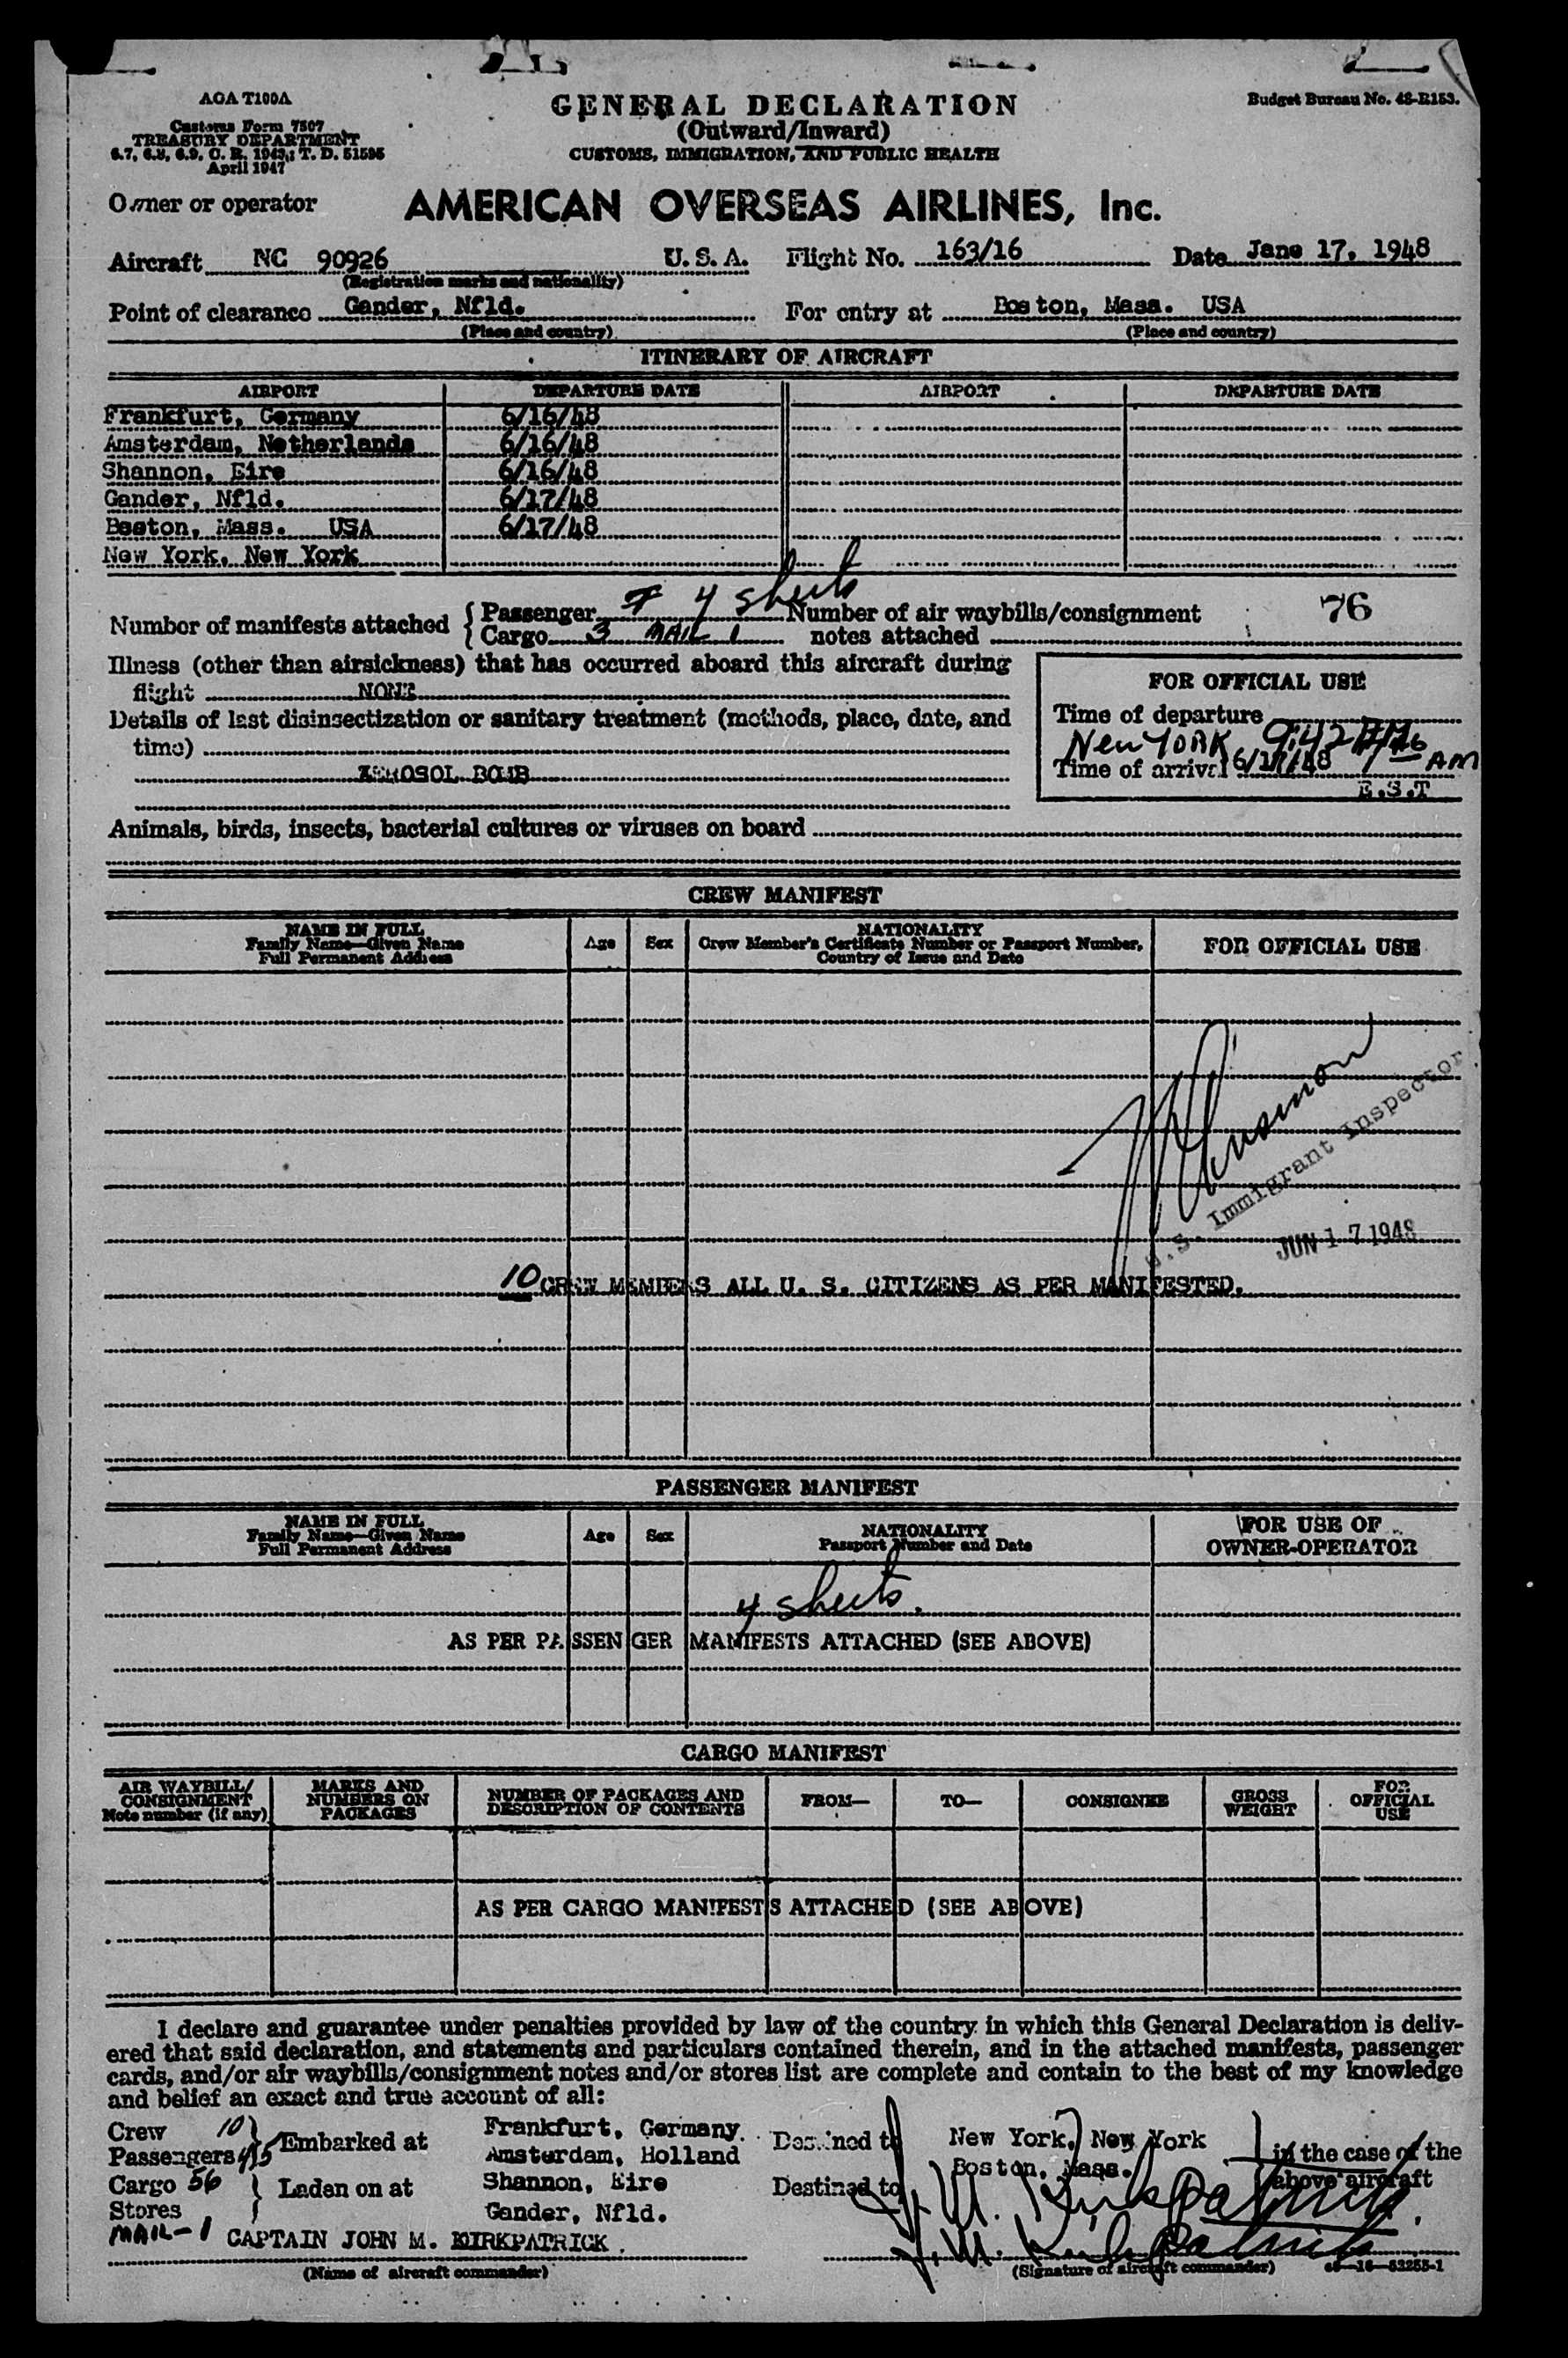 AOA T100A
Customs Form 7507
TREASURY DEPARTMENT
6.7, 6.8, 6.9, C. R. 1943; T. D. 51595
April 1947
GENERAL DECLARATION
(Outward/Inward)
CUSTOMS, IMMIGRATION, AND PUBLIC HEALTH
Budget Bureau No. 48-R153.
Owner or operator AMERICAN OVERSEAS AIRLINES, Inc.
Aircraft NC 90926 U. S. A. Flight No. 163/16 Date June 17, 1948
(Registration marks and nationality)
Point of clearance Gander, Nfld. For entry at Boston, Mass. USA
(Place and country) (Place and country)
ITINERARY OF AIRCRAFT
AIRPORT DEPARTURE DATE AIRPORT DEPARTURE DATE
Frankfurt, Germany 6/16/48
Amsterdam, Netherlands 6/16/48
Shannon, Eire 6/16/48
Gander, Nfld. 6/17/48
Boston, Mass. USA 6/17/48
New York, New York
Number of manifests attached { Passenger 4 sheets Number of air waybills/consignment 76
Cargo 3 MAIL 1 notes attached
Illness (other than airsickness) that has occurred aboard this aircraft during
flight NONE
Details of last disinsectization or sanitary treatment (methods, place, date, and
time)
AEROSOL BOMB
FOR OFFICIAL USE
Time of departure
New YORK 9:42 AM
Time of arrival 6/17/48 AM
E.S.T
Animals, birds, insects, bacterial cultures or viruses on board
CREW MANIFEST
NAME IN FULL
Family Name—Given Name
Full Permanent Address
Age
Sex
NATIONALITY
Crew Member's Certificate Number or Passport Number,
Country of Issue and Date
FOR OFFICIAL USE
U.S. Immigrant Inspector
JUN 17 1948
10 CREW MEMBERS ALL U. S. CITIZENS AS PER MANIFESTED.
PASSENGER MANIFEST
NAME IN FULL
Family Name—Given Name
Full Permanent Address
Age
Sex
NATIONALITY
Passport Number and Date
FOR USE OF
OWNER-OPERATOR
4 sheets.
AS PER PASSENGER MANIFESTS ATTACHED (SEE ABOVE)
CARGO MANIFEST
AIR WAYBILL/
CONSIGNMENT
Note number (if any)
MARKS AND
NUMBERS ON
PACKAGES
NUMBER OF PACKAGES AND
DESCRIPTION OF CONTENTS
FROM—
TO—
CONSIGNEE
GROSS
WEIGHT
FOR
OFFICIAL
USE
AS PER CARGO MANIFESTS ATTACHED (SEE ABOVE)
I declare and guarantee under penalties provided by law of the country in which this General Declaration is deliv-
ered that said declaration, and statements and particulars contained therein, and in the attached manifests, passenger
cards, and/or air waybills/consignment notes and/or stores list are complete and contain to the best of my knowledge
and belief an exact and true account of all:
Crew 10 } Embarked at Frankfurt, Germany Destined to New York, New York } in the case of the
Passengers 45 Amsterdam, Holland Boston, Mass. above aircraft
Cargo 56 } Laden on at Shannon, Eire Destined to
Stores Gander, Nfld. J. M. Kirkpatrick
MAIL-1 CAPTAIN JOHN M. KIRKPATRICK. J. M. Kirkpatrick
(Name of aircraft commander) (Signature of aircraft commander) 16—53255-1